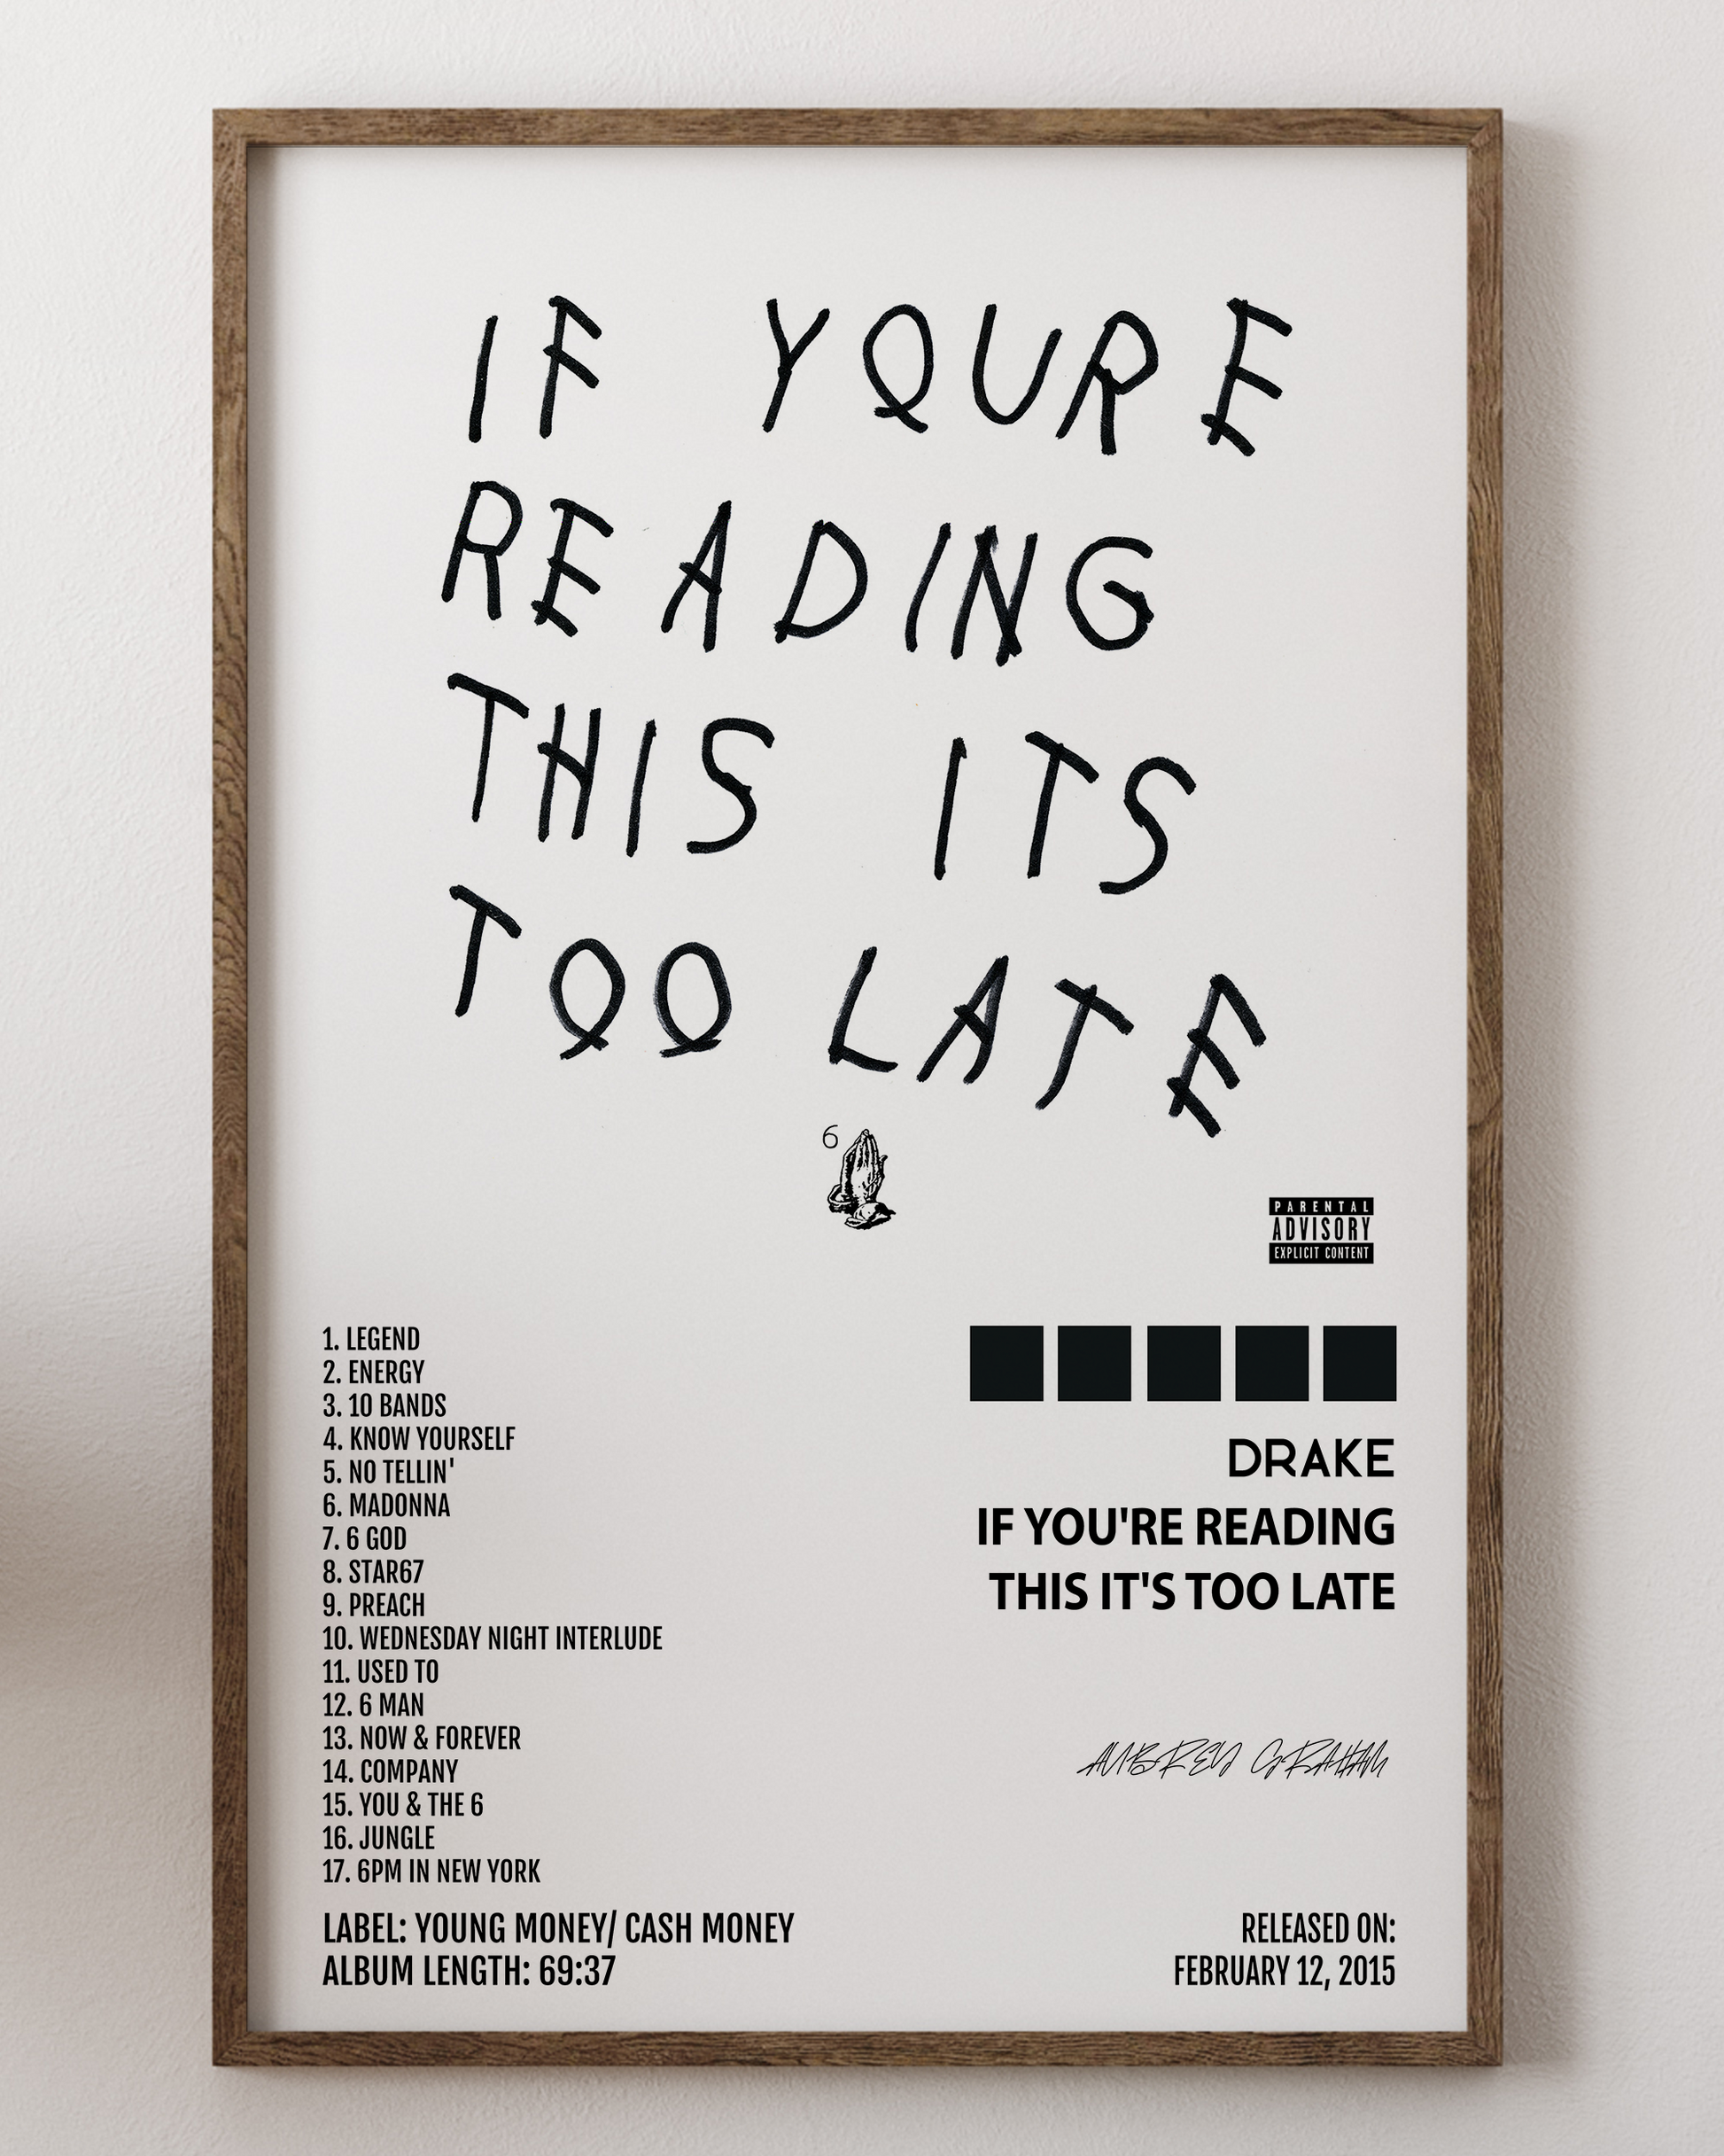 IF YOURE
READING
THIS ITS
TOO LATE
6
PARENTAL
ADVISORY
EXPLICIT CONTENT
1. LEGEND
2. ENERGY
3. 10 BANDS
4. KNOW YOURSELF
5. NO TELLIN'
6. MADONNA
7. 6 GOD
8. STAR67
9. PREACH
10. WEDNESDAY NIGHT INTERLUDE
11. USED TO
12. 6 MAN
13. NOW & FOREVER
14. COMPANY
15. YOU & THE 6
16. JUNGLE
17. 6PM IN NEW YORK
DRAKE
IF YOU'RE READING
THIS IT'S TOO LATE
AUBREY GRAHAM
LABEL: YOUNG MONEY/ CASH MONEY
ALBUM LENGTH: 69:37
RELEASED ON:
FEBRUARY 12, 2015